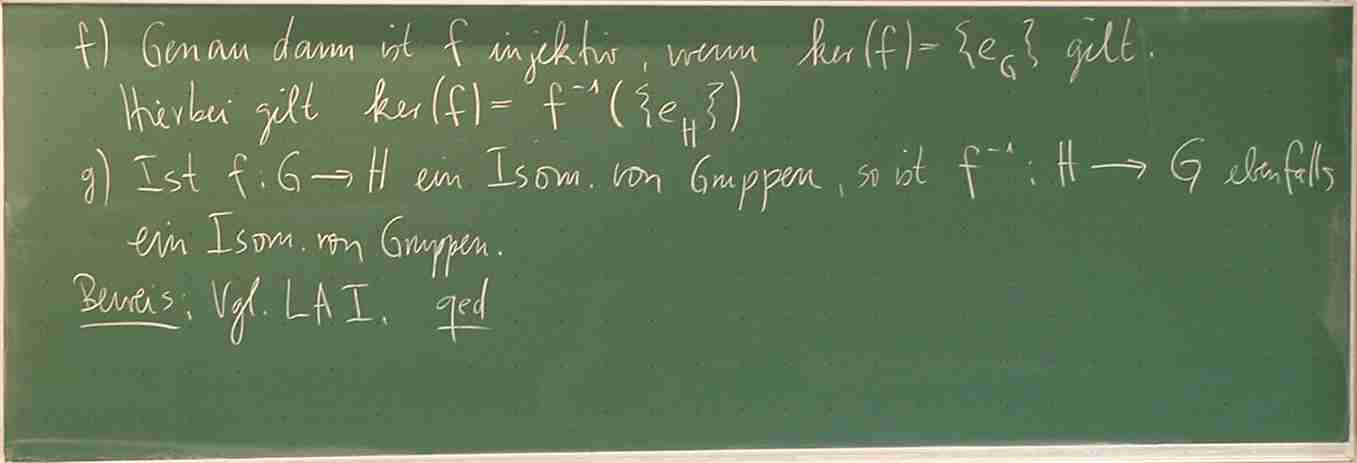 f) Genau dann ist f injektiv, wenn ker(f) = {e_G} gilt.
Hierbei gilt ker(f) = f⁻¹({e_H})
g) Ist f: G → H ein Isom. von Gruppen, so ist f⁻¹: H → G ebenfalls
ein Isom. von Gruppen.
Beweis: Vgl. LA I. qed